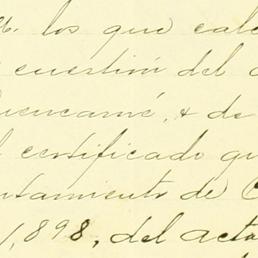 los que cale
cuestión del
uencamé, & de
l certificado qu
ntamiento de C
1,898, del acta